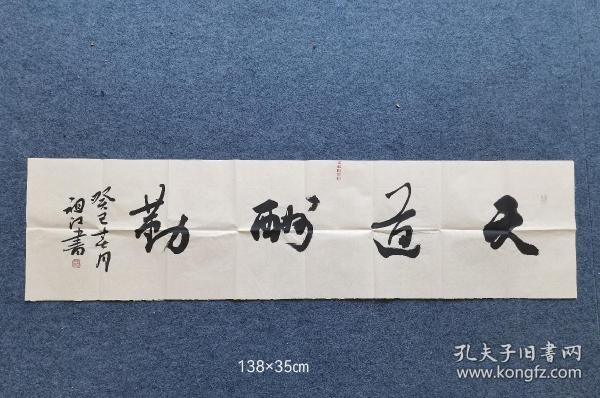 天道酬勤
癸巳
月
祖江書
138×35㎝
孔夫子旧書网
www.kongfz.com